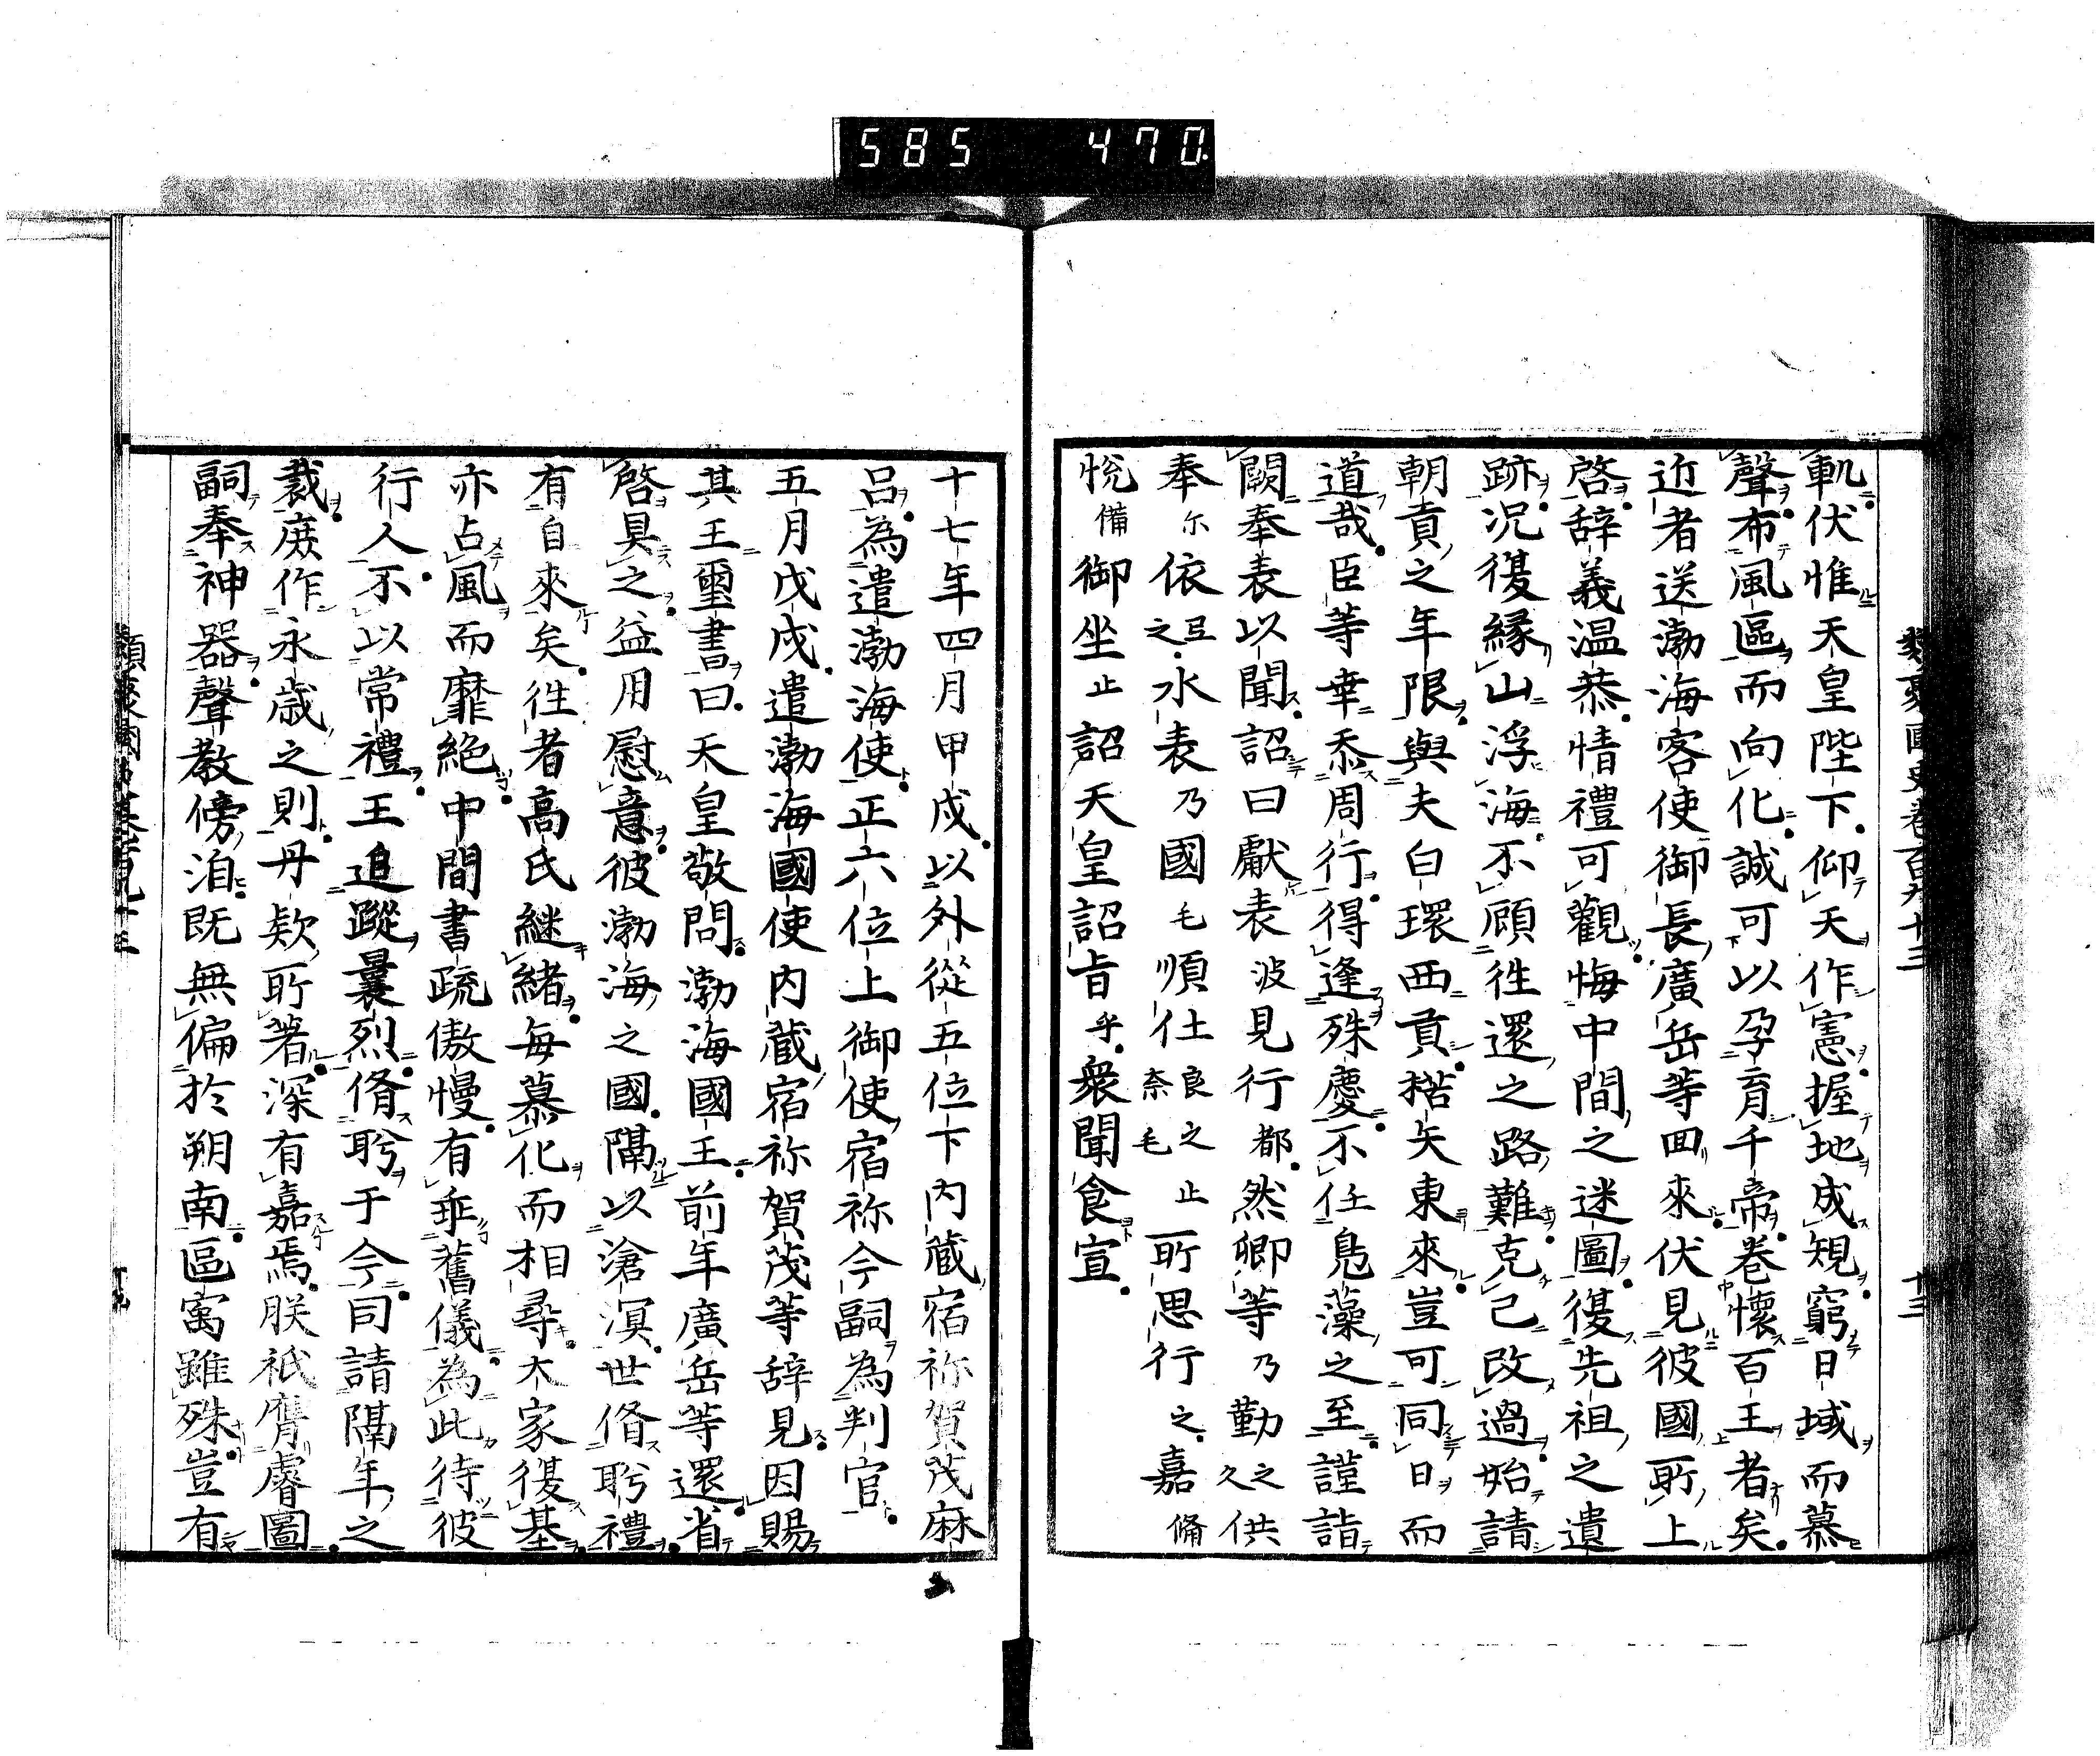 585 470.
類聚國史卷百九十三
十三
軌伏惟天皇陛下仰天作憲握地成䂓窮日域而慕
聲布風區而向化誠可以孕育千帝卷懷百王者矣
近者送渤海客使御長廣岳等回來伏見彼國所上
啓辞義温恭情禮可觀悔中間之迷圖復先祖之遺
跡况復緣山浮海不顧往還之路難克己改過始請
朝貢之年限與夫白環西貢楛矢東來豈可同日而
道哉臣等幸忝周行得逢殊慶不任鳧藻之至謹詣
闕奉表以聞詔曰獻表波見行都然卿等乃勤之久供
奉尓依弖之水表乃國毛順仕良之奈毛止所思行之嘉備
悦備御坐止詔天皇詔旨乎衆聞食宣
十七年四月甲戌以外從五位下内藏宿祢賀茂麻
呂為遣渤海使正六位上御使宿祢今嗣為判官
五月戊戌遣渤海國使内藏宿祢賀茂等辞見因賜
其王璽書曰天皇敬問渤海國王前年廣岳等還省
啓具之益用慰意彼渤海之國隔以滄溟世脩聘禮
有自來矣往者高氏継緒毎慕化而相尋大家復基
亦占風而靡絶中間書疏傲慢有乖舊儀為此待彼
行人不以常禮王追蹤曩烈脩聘于今同請隔年之
裁庶作永歳之則丹欵所著深有嘉焉朕祗膺睿圖
嗣奉神器聲教傍洎既無偏於朔南區寓雖殊豈有